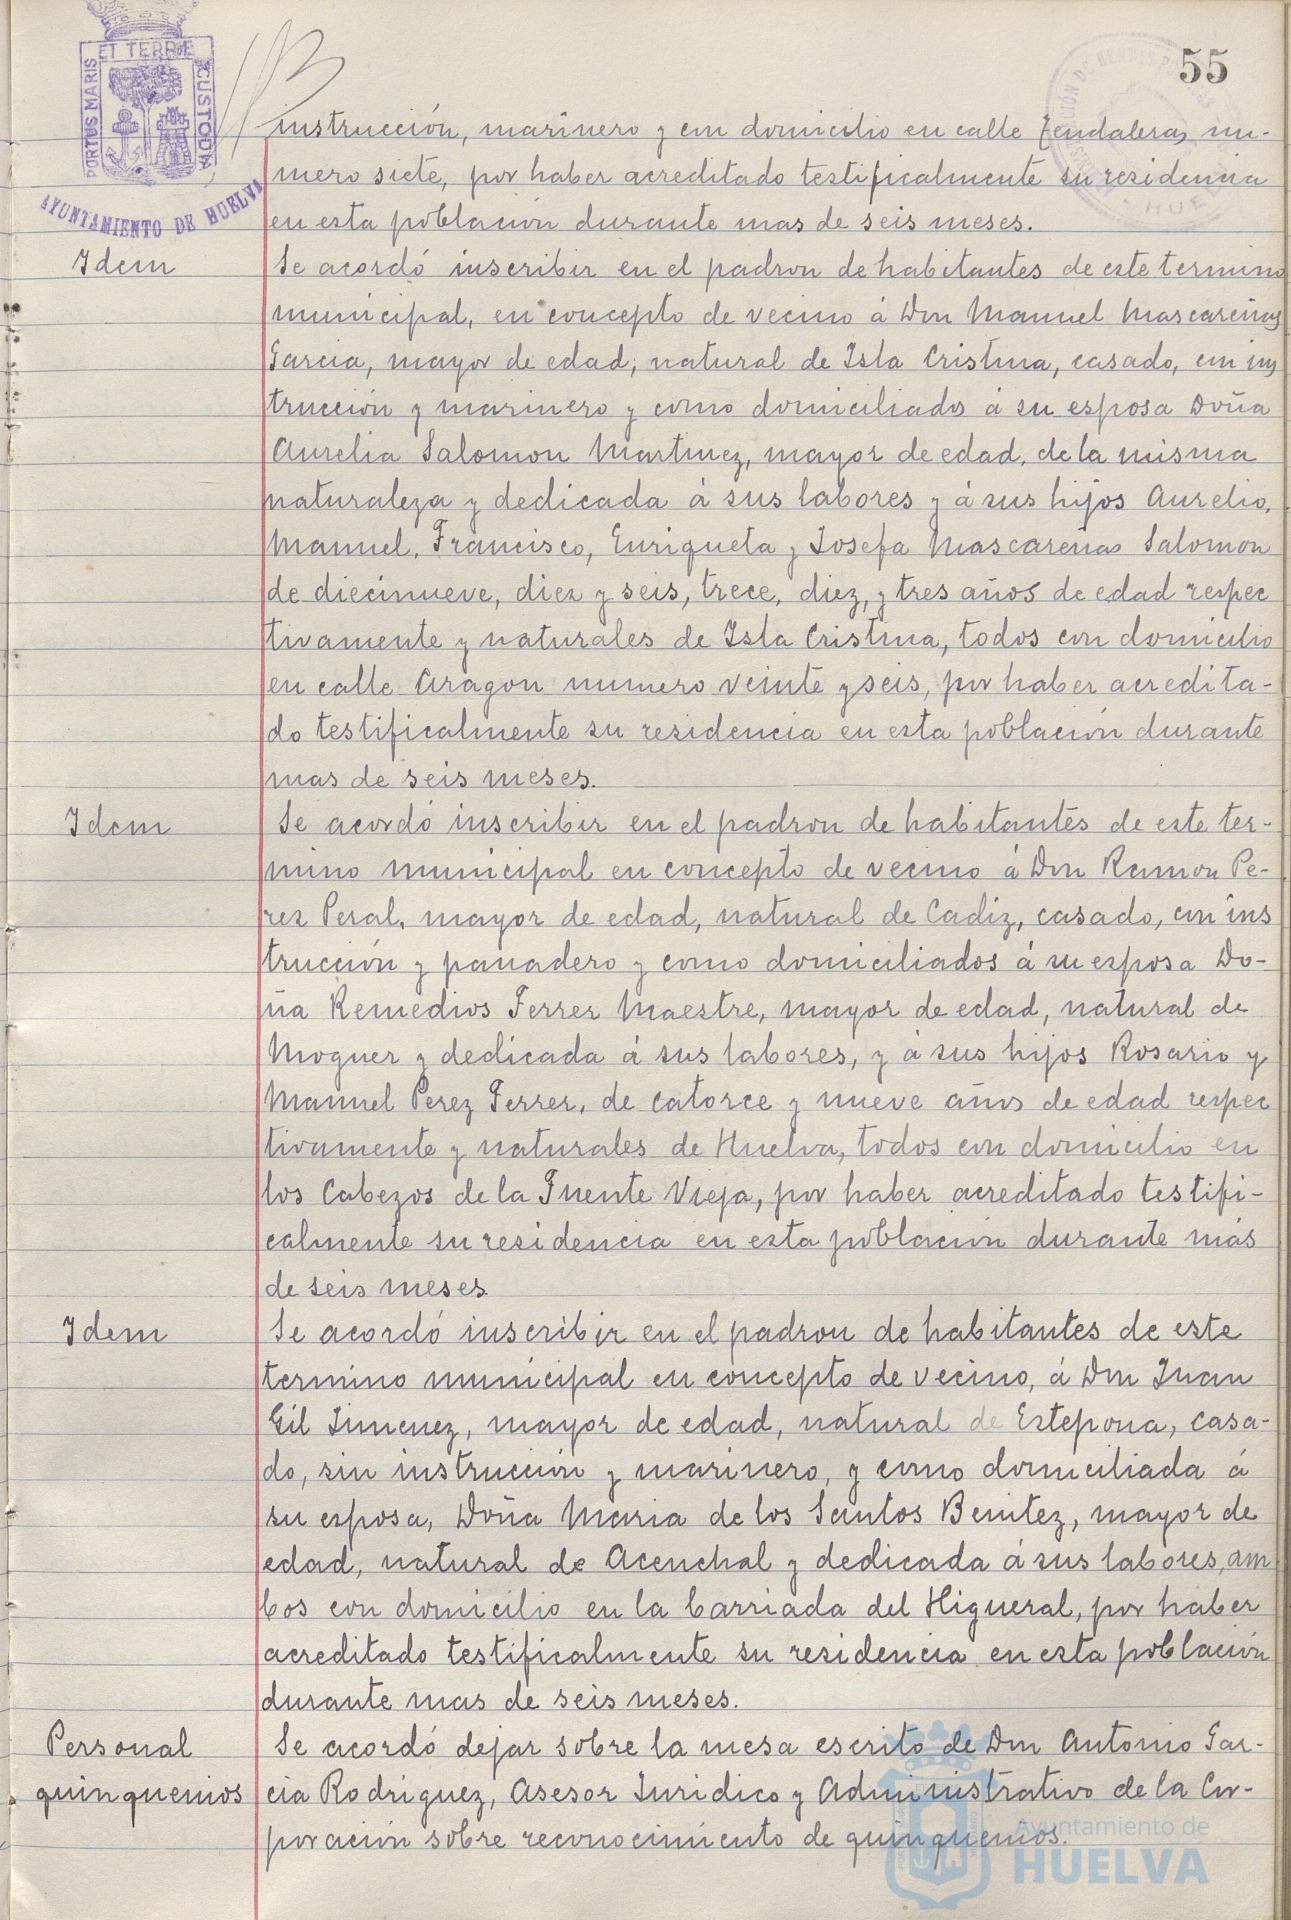 55
PORTUS MARIS ET TERRÆ CUSTODIA
AYUNTAMIENTO DE HUELVA
instrucción, marinero y con domicilio en calle nu-
mero siete, por haber acreditado testificalmente su residencia
en esta población durante mas de seis meses.
Idem
Se acordó inscribir en el padron de habitantes de este termino
municipal, en concepto de vecino á Don Manuel Mascareñas
Garcia, mayor de edad, natural de Isla Cristina, casado, con ins
trucción y marinero y como domiciliados á su esposa Doña
Aurelia Salomon Martinez, mayor de edad, de la misma
naturaleza y dedicada á sus labores y á sus hijos Aurelio,
Manuel, Francisco, Enriqueta y Josefa Mascareñas Salomon
de diecinueve, diez y seis, trece, diez, y tres años de edad respec
tivamente y naturales de Isla Cristina, todos con domicilio
en calle Aragon numero veinte y seis, por haber acredita-
do testificalmente su residencia en esta población durante
mas de seis meses.
Idem
Se acordó inscribir en el padron de habitantes de este ter-
mino municipal en concepto de vecino á Don Ramon Pe-
rez Peral, mayor de edad, natural de Cadiz, casado, con ins
trucción y panadero y como domiciliados á su esposa Do-
ña Remedios Ferrer Maestre, mayor de edad, natural de
Moguer y dedicada á sus labores, y á sus hijos Rosario y
Manuel Perez Ferrer, de catorce y nueve años de edad respec
tivamente y naturales de Huelva, todos con domicilio en
los Cabezos de la Fuente Vieja, por haber acreditado testifi-
calmente su residencia en esta población durante más
de seis meses.
Idem
Se acordó inscribir en el padron de habitantes de este
termino municipal en concepto de vecino, á Don Juan
Gil Jimenez, mayor de edad, natural de Estepona, casa-
do, sin instrucción y marinero, y como domiciliada á
su esposa, Doña Maria de los Santos Benitez, mayor de
edad, natural de Acenchal y dedicada á sus labores, am
bos con domicilio en la barriada del Higueral, por haber
acreditado testificalmente su residencia en esta población
durante mas de seis meses.
Personal
quinquenios
Se acordó dejar sobre la mesa escrito de Don Antonio Gar-
cia Rodriguez, Asesor Juridico y Administrativo de la Cor-
poración sobre reconocimiento de quinquenios.
Ayuntamiento de
HUELVA